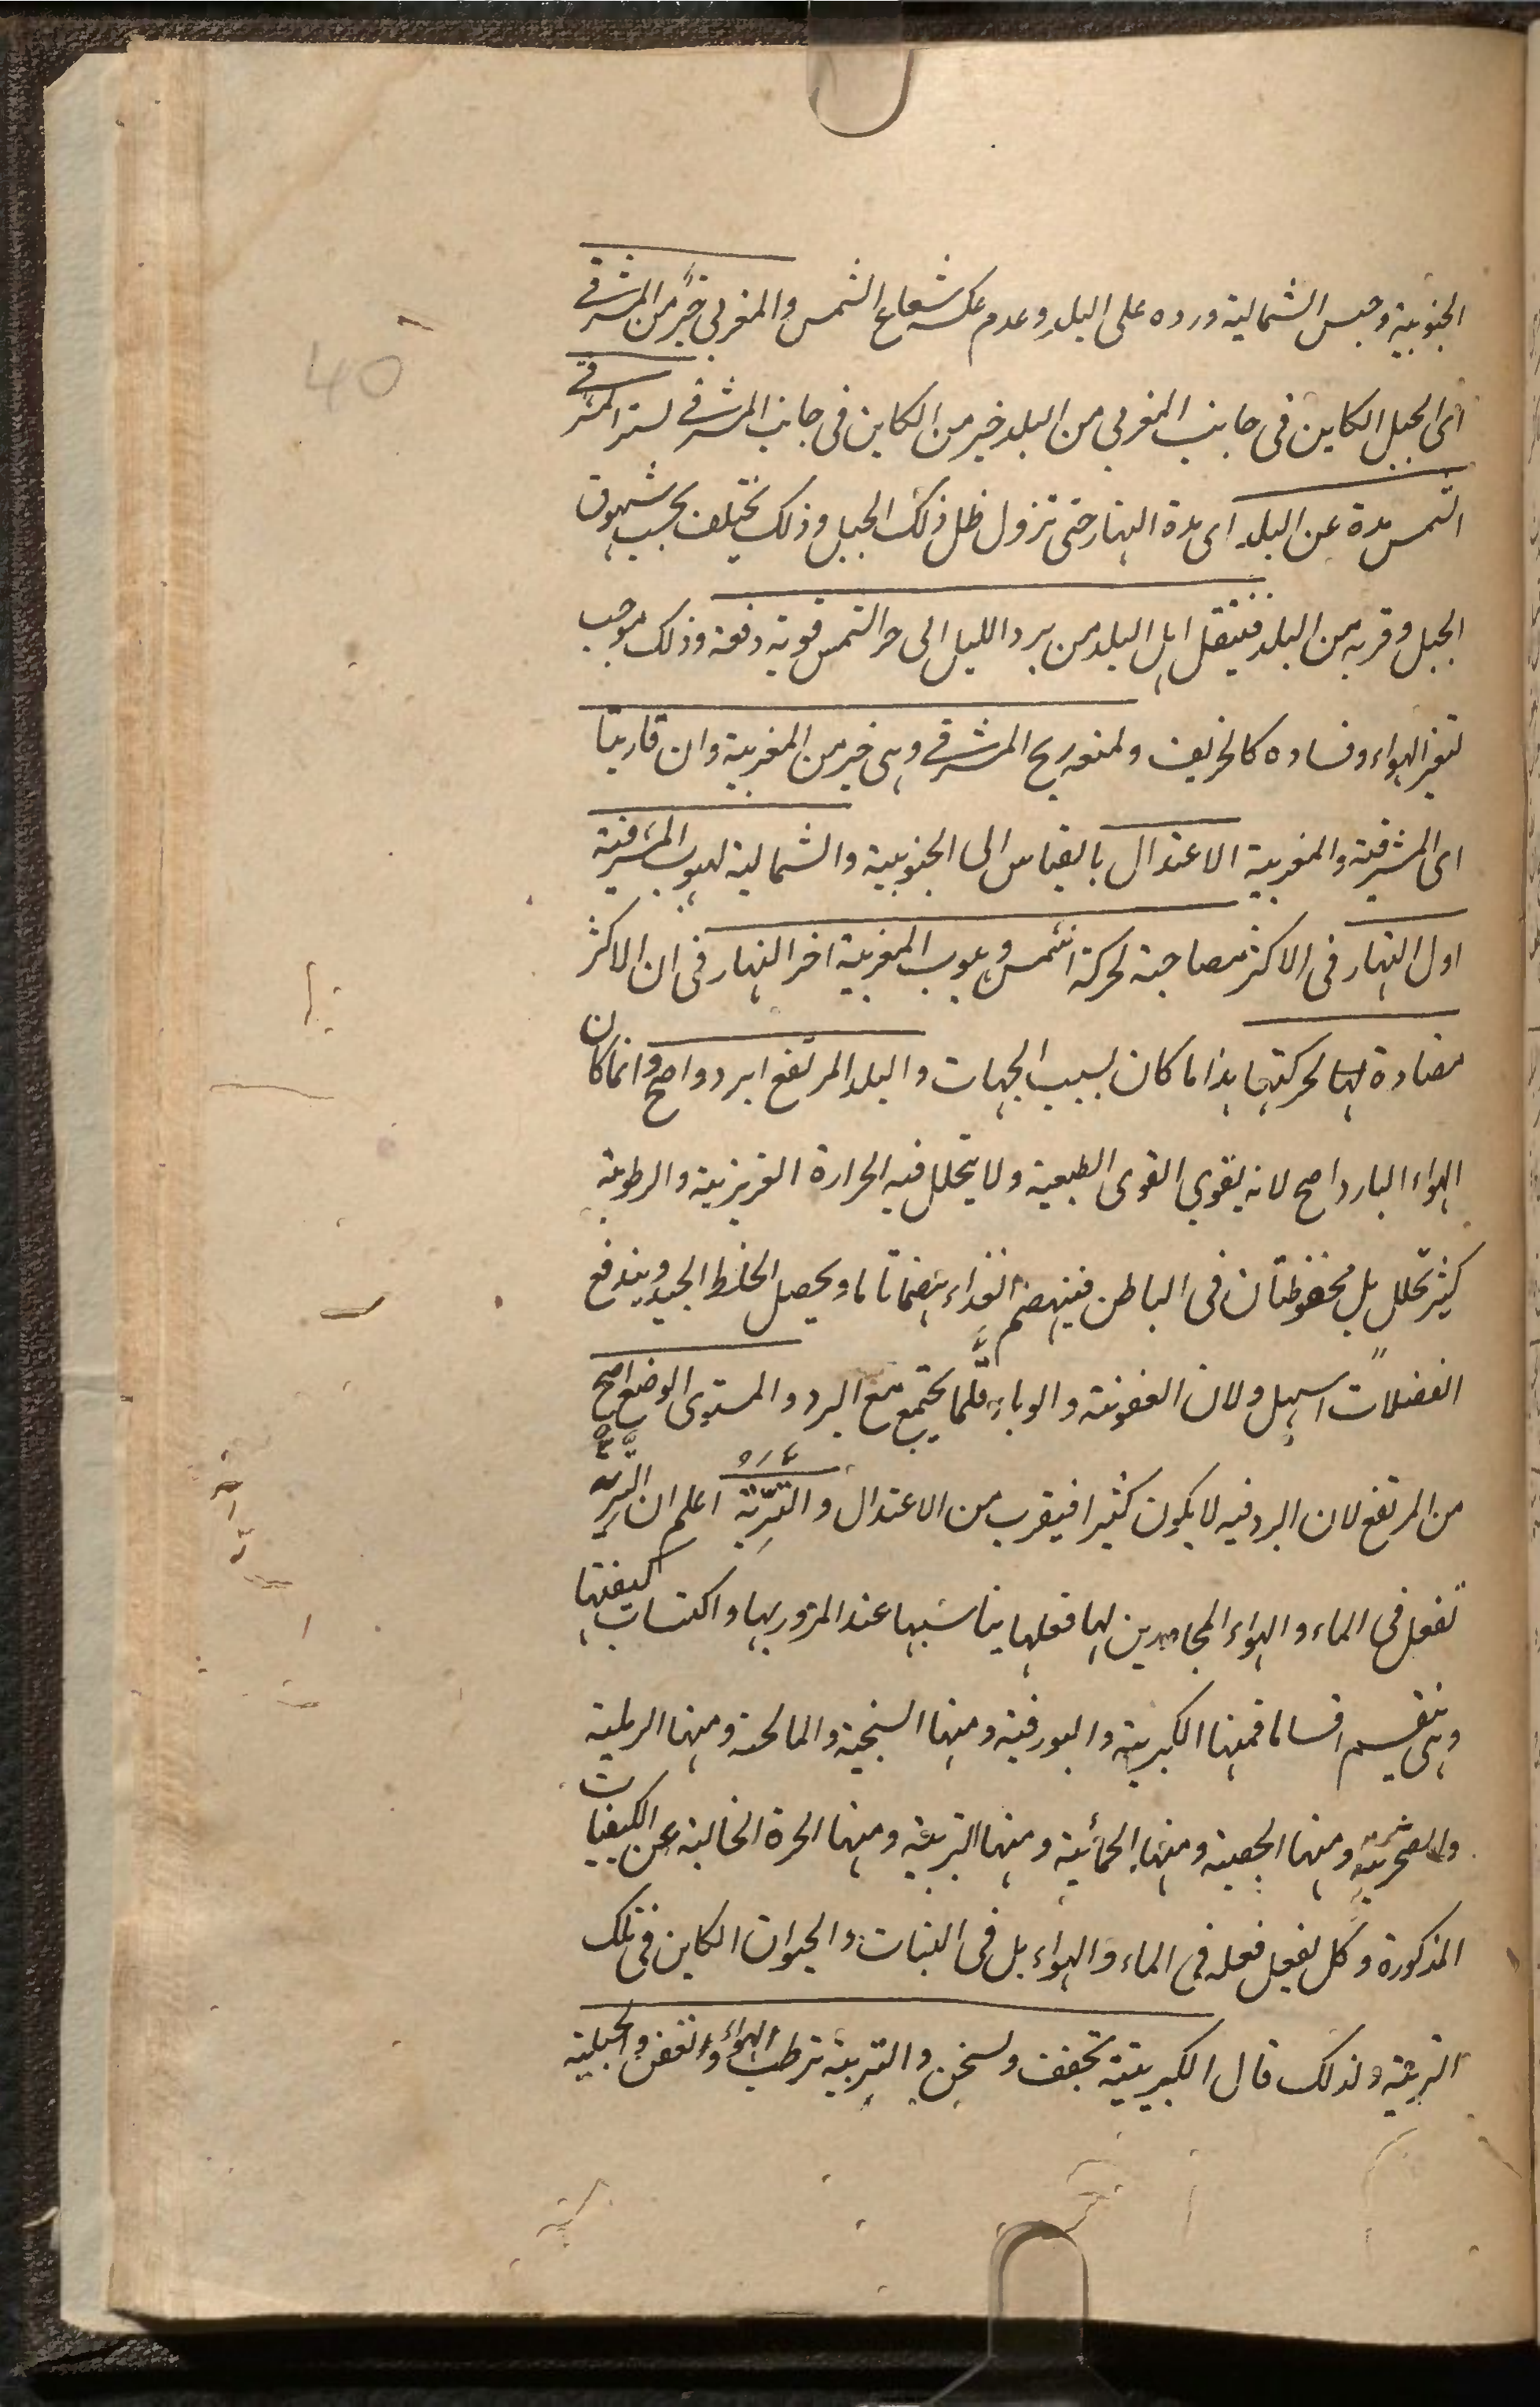 40
الجنوبية وحبس الشمالية ورده على البلد وعدم عكسه شعاع الشمس والمغربي خير من المشرقي
اى الجبل الكاين فى جانب المغربي من البلد خير من الكاين فى جانب المشرقي لستر المشرقي
الشمس مدة عن البلد اى مدة النهار حتى تزول ظل ذلك الجبل وذلك يختلف بحسب شهوق
الجبل وقربه من البلد فينتقل اهل البلد من برد الليل الى حر الشمس قوية دفعة وذلك موجب
لتغير الهواء وفساده كالخريف ولمنعه ريح المشرقي وهى خير من المغربية وان قاربتا
اى المشرقية والمغربية الاعتدال بالقياس الى الجنوبية والشمالية لهبوب المشرقية
اول النهار فى الاكثر مصاحبة لحركة الشمس وهبوب المغربية اخر النهار فى ان الاكثر
مضادة لها لحركتها هذا ما كان بسبب الجهات والبلد المرتفع ابرد واصح وانما كان
الهواء البارد اصح لانه يقوي القوى الطبعية ولا يتحلل فيه الحرارة الغريزية والرطوبة
كثير تحلل بل محفوظتان فى الباطن فينهضم الغذاء هضما تاما ويحصل الخلط الجيد ويندفع
الفضلات اسهل ولان العفونة والوباء قلما يجتمع مع البرد والمستوى الوضع اصح
من المرتفع لان البرد فيه لا يكون كثيرا فيقرب من الاعتدال والتربة اعلم ان التربة
تفعل فى الماء والهواء المجاورين لها فعلها يناسبها عند المرور بها واكتساب كيفيتها
وهى تنقسم اقساما فمنها الكبريتية والبورقية ومنها السبخية والمالحة ومنها الرملية
والصخرية ومنها الجصية ومنها الحمائية ومنها النزية ومنها الحرة الخالية عن الكيفيات
المذكورة وكل يفعل فعله فى الماء والهواء بل فى النبات والحيوان الكاين فى تلك
التربة ولذلك قال الكبريتية تجفف وتسخن والنزية ترطب الهواء وتعفن والجبلية